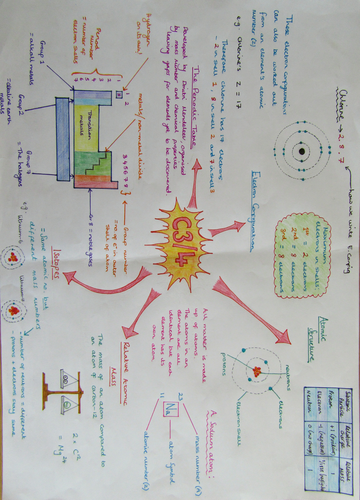 C3 1.4
The Periodic Table
Developed by Dmitri Mendeleev, organised
by mass number and chemical properties
leaving gaps for elements yet to be discovered
hydrogen
on its own!
Period number
= number of
electron shells
Group 1
= alkali metals
Group 2
= alkaline earth
metals
Transition
metals
metal/non-metal divide
3 4 5 6 7 8
Group number
= no. of e⁻ in outer
shell of atom
G.8 = noble gases
Group 7
= The halogens
These electron configurations
can also be worked out
from an element's atomic
number (Z)
e.g. Chlorine's Z = 17
Therefore chlorine has 17 electrons
- 2 in shell 1, 8 in shell 2 and 7 in shell 3
Chlorine → 2. 8. 7
how we write E. Config
Electron Configuration
Maximum
electrons in shells:
1st = 2 electrons
2nd = 8 electrons
3rd = 8 electrons
Atomic
Structure
protons
neutrons
electrons
electron shells
Subatomic
Particle
Relative
charge
Relative
mass
Proton
+1 (positive)
1
Electron
-1 (negative)
Neutron
0 (no charge)
1
All matter is made
up of atoms.
The atoms in an
element are all
identical but each
element has its
own atom
A Sodium atom:
23
11
Na
mass number (A)
atom symbol
atomic number (Z)
Relative Atomic
Mass
The mass of an atom compared to
an atom of carbon-12
Isotopes
= Same atomic but
different mass numbers
- number of neutrons = different
- protons + electrons stay same